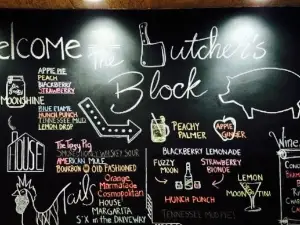 Welcome to
The Butcher's
Block
MOONSHINE
APPLE PIE
PEACH
BLACKBERRY
STRAWBERRY
BLUE FLAME
HUNCH PUNCH
TENNESSEE MUD
LEMON DROP
HOUSE
The Tipsy Pig
SMOKEHOUSE WHISKEY SOUR
AMERICAN MULE
BOURBON OLD FASHIONED
Orange
Marmalade
Cosmopolitan
HOUSE
MARGARITA
S*X in the DRIVEWAY
Tails
PEACHY
PALMER
APPLE
GINGER
BLACKBERRY LEMONADE
FUZZY
MOON
STRAWBERRY
BLONDE
HUNCH PUNCH
LEMON
MOON TINI
TENNESSEE MUDPIES
Wine